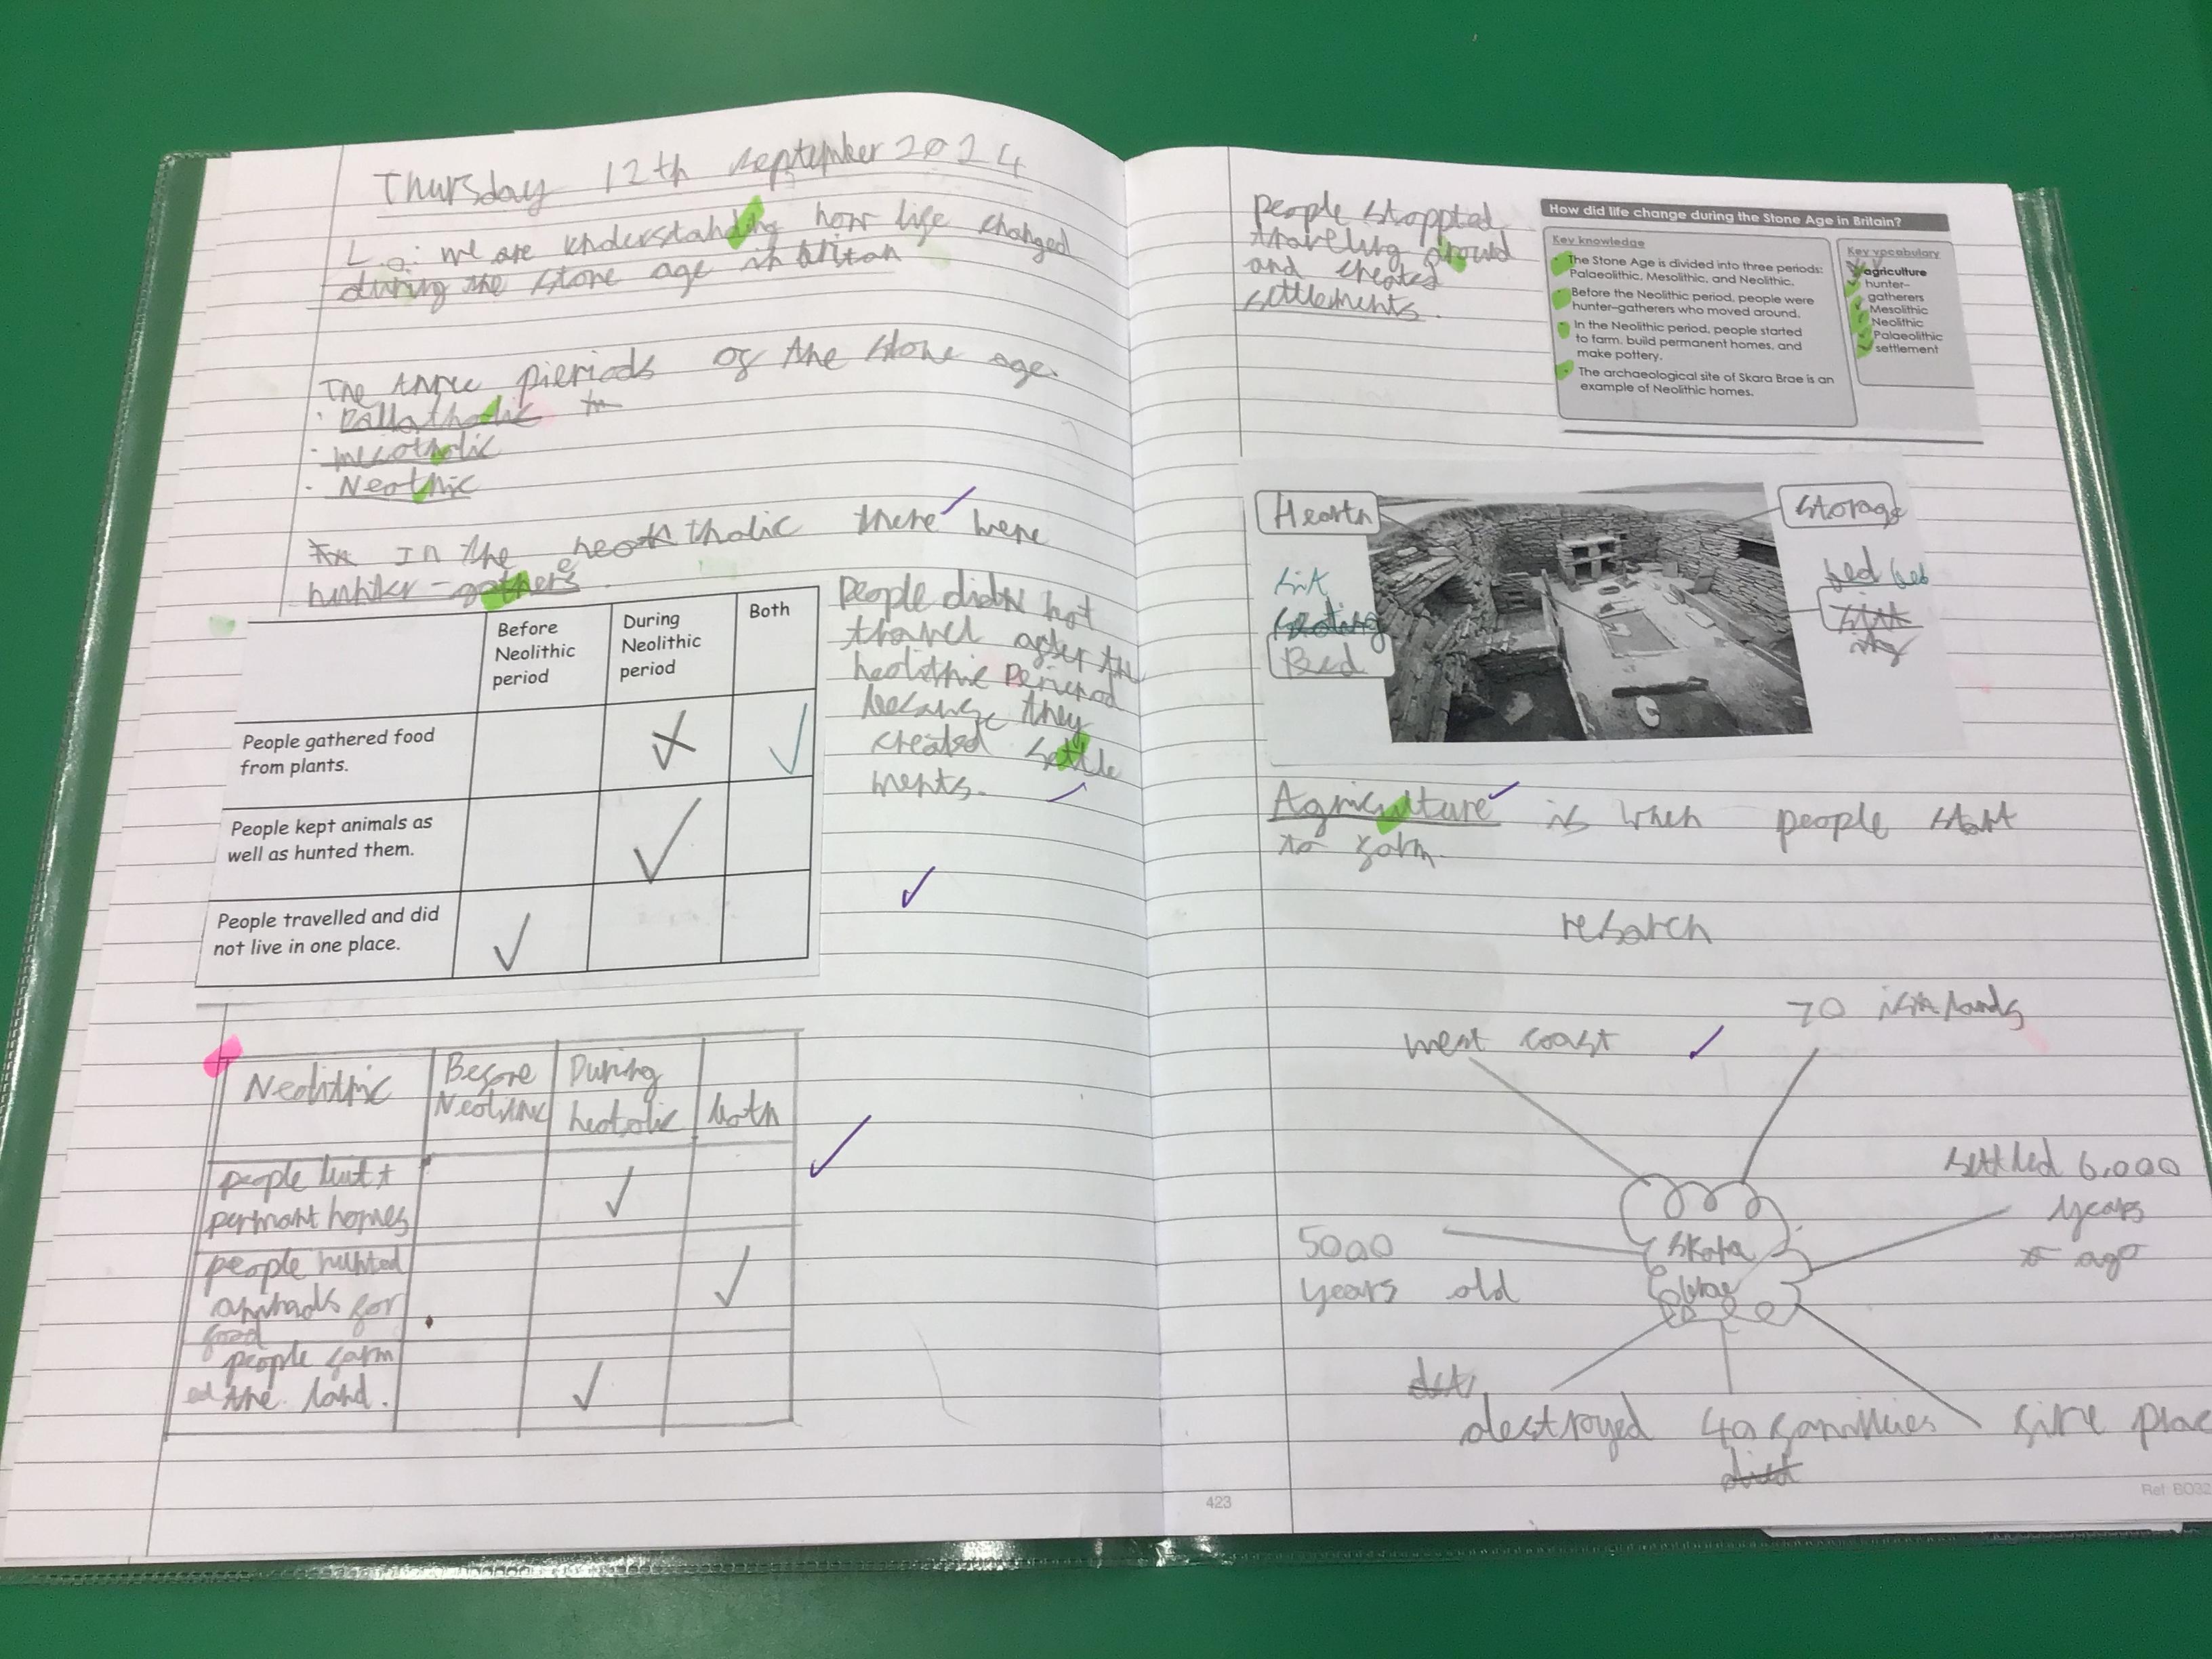 Thursday 12th september 2024
L.o: we are understanding how life changed
during the stone age in Britan
The three pieriods of the stone age.
· Pallatholic
· mesotholic
· Neothic
In the neo tholic there were
hunter-gathers
Before
Neolithic
period
During
Neolithic
period
Both
People gathered food
from plants.
People kept animals as
well as hunted them.
People travelled and did
not live in one place.
People didn not
travel after the
neolithic Perieriod
because they
created settle
ments.
Neolithic
Before
Neolithic
During
neotolic
both
people built
permant homes
people hunted
animals for
food
people farm
ed the land.
people stoppted
traveling around
and created
settlements.
How did life change during the Stone Age in Britain?
Key knowledge
The Stone Age is divided into three periods:
Palaeolithic, Mesolithic, and Neolithic.
Before the Neolithic period, people were
hunter–gatherers who moved around.
In the Neolithic period, people started
to farm, build permanent homes, and
make pottery.
The archaeological site of Skara Brae is an
example of Neolithic homes.
Key vocabulary
agriculture
hunter–
gatherers
Mesolithic
Neolithic
Palaeolithic
settlement
Hearth
Storage
Bed
bed bed
Agriculture is when people start
to farm.
research
west coast
70 islands
settled 6,000
years
ago
5000
years old
Skara
brae
destroyed 40 famillies fire plac
423
Ref: BO32